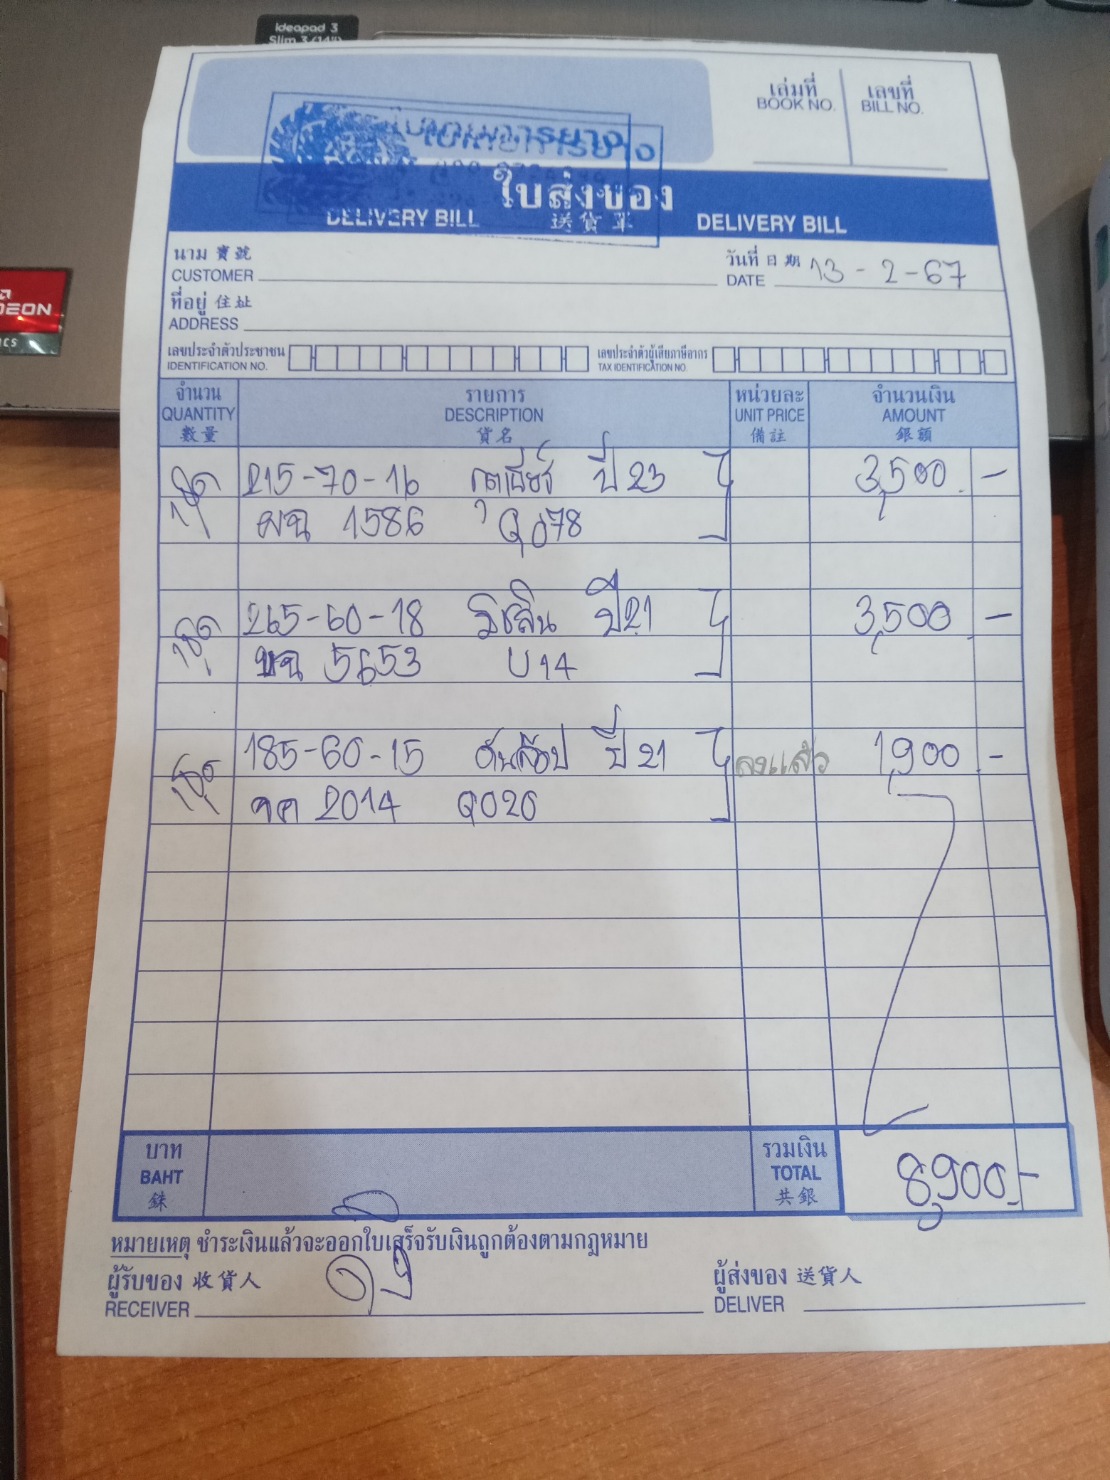 ideapad 3
Slim 3 (14")
เล่มที่ เลขที่
BOOK NO. BILL NO.
ใบส่งของ
DELIVERY BILL 送貨單 DELIVERY BILL
นาม 寶號 วันที่ 日期 13-2-67
CUSTOMER DATE
ที่อยู่ 住址
ADDRESS
เลขประจำตัวประชาชน เลขประจำตัวผู้เสียภาษีอากร
IDENTIFICATION NO. TAX IDENTIFICATION NO.
จำนวน รายการ หน่วยละ จำนวนเงิน
QUANTITY DESCRIPTION UNIT PRICE AMOUNT
數量 貨名 備註 銀額
215-70-16 ปี 23 3,500.-
ผฉ 1586 Q078
265-60-18 มิชลิน ปี 21 3,500.-
ขฉ 5653 U14
185-60-15 ดันล็อป ปี 21 ลงแล้ว 1,900.-
จค 2014 Q020
บาท รวมเงิน
BAHT TOTAL 8,900.-
銖 共銀
หมายเหตุ ชำระเงินแล้วจะออกใบเสร็จรับเงินถูกต้องตามกฎหมาย
ผู้รับของ 收貨人 ผู้ส่งของ 送貨人
RECEIVER DELIVER